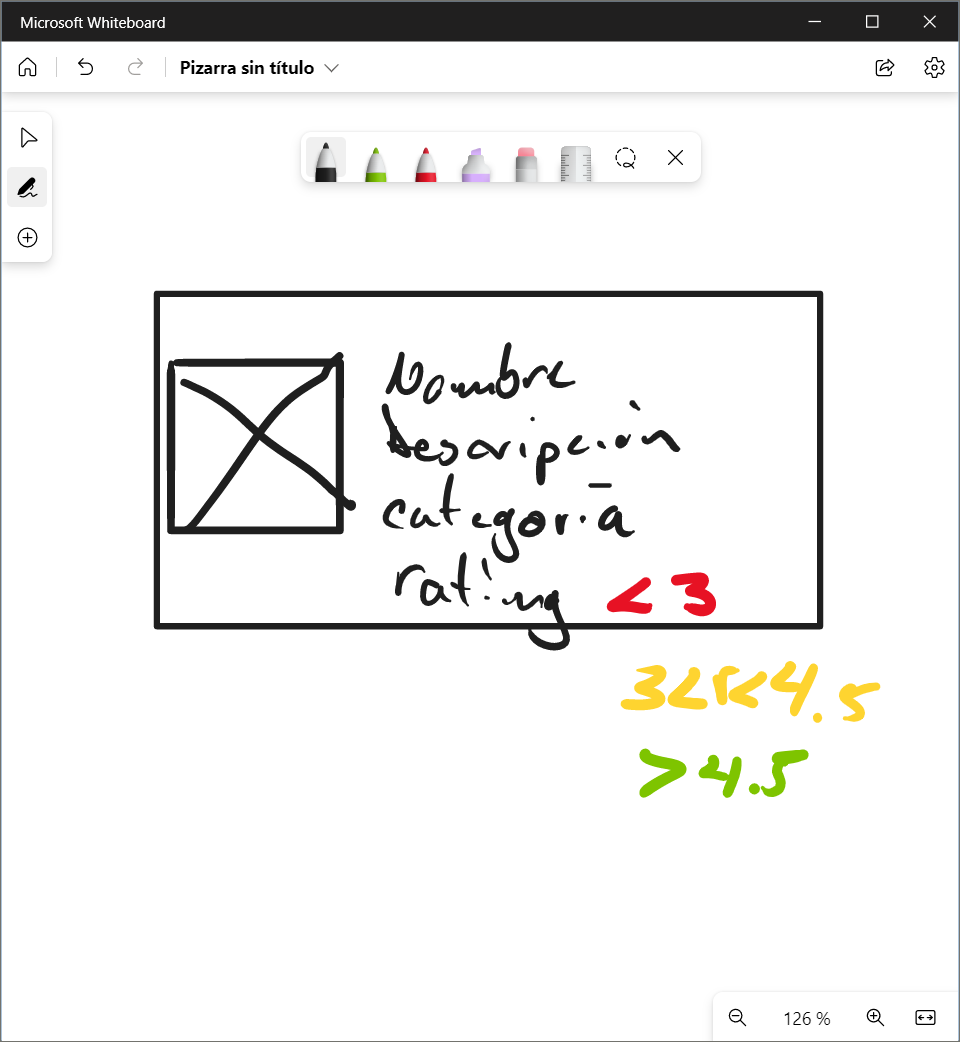 Microsoft Whiteboard
Pizarra sin título
Nombre
Descripción
categoría
rating <3
3<r<4.5
>4.5
126 %